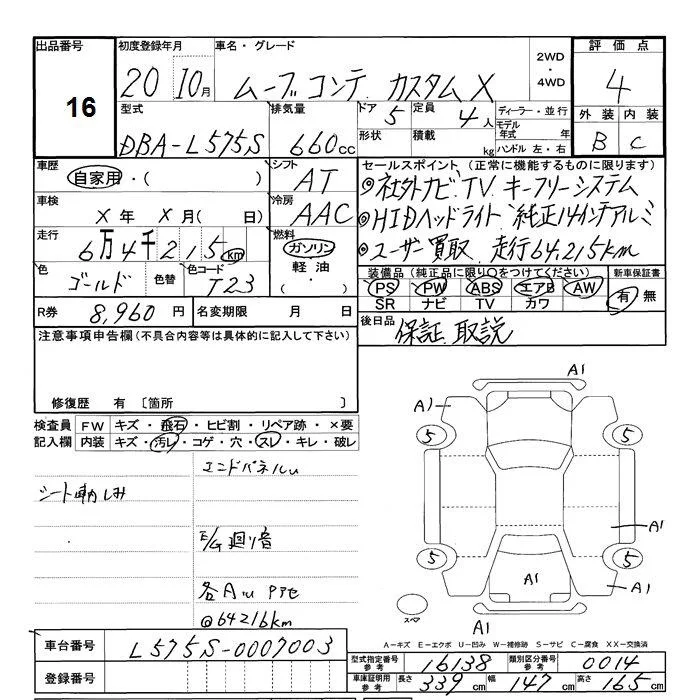 出品番号
16
初度登録年月
20 10月
車名・グレード
ムーブ コンテ カスタム X
2WD
・
4WD
評価点
4
外装 内装
B C
型式
DBA-L575S
排気量
660cc
ドア 5
定員 4人
形状
積載 kg
ディーラー・並行
モデル年式 年
ハンドル 左・右
車歴
自家用・( )
シフト
AT
車検
X年 X月( 日)
冷房
AAC
走行
6万4千215km
燃料
ガソリン
軽油
・( )
色
ゴールド
色替
色コード
T23
R券 8,960円
名変期限 月 日
セールスポイント(正常に機能するものに限ります)
◎社外ナビ.TV キーフリーシステム
◎HIDヘッドライト 純正14インチアルミ
◎ユーザー買取 走行64,215km
装備品(純正品に限り○をつけてください)
PS PW ABS エアB AW
SR ナビ TV カワ
新車保証書
有 無
後日品
保証 取説
注意事項申告欄(不具合内容等は具体的に記入して下さい)
修復歴 有 〔箇所 〕
検査員記入欄
FW キズ・飛石・ヒビ割・リペア跡・×要
内装 キズ・汚レ・コゲ・穴・スレ・キレ・破レ
エンドパネルu
E/G廻り音
@64216km
A1
A1
5
5
A1
5
5
A1
A1
A1
スペア
A-キズ E-エクボ U-凹み W-補修跡 S-サビ C-腐食 XX-交換済
車台番号 L575S-0007003
登録番号
型式指定番号参考 16138
類別区分番号参考 0014
車庫証明用参考 長さ 339cm 幅 147cm 高さ 165cm